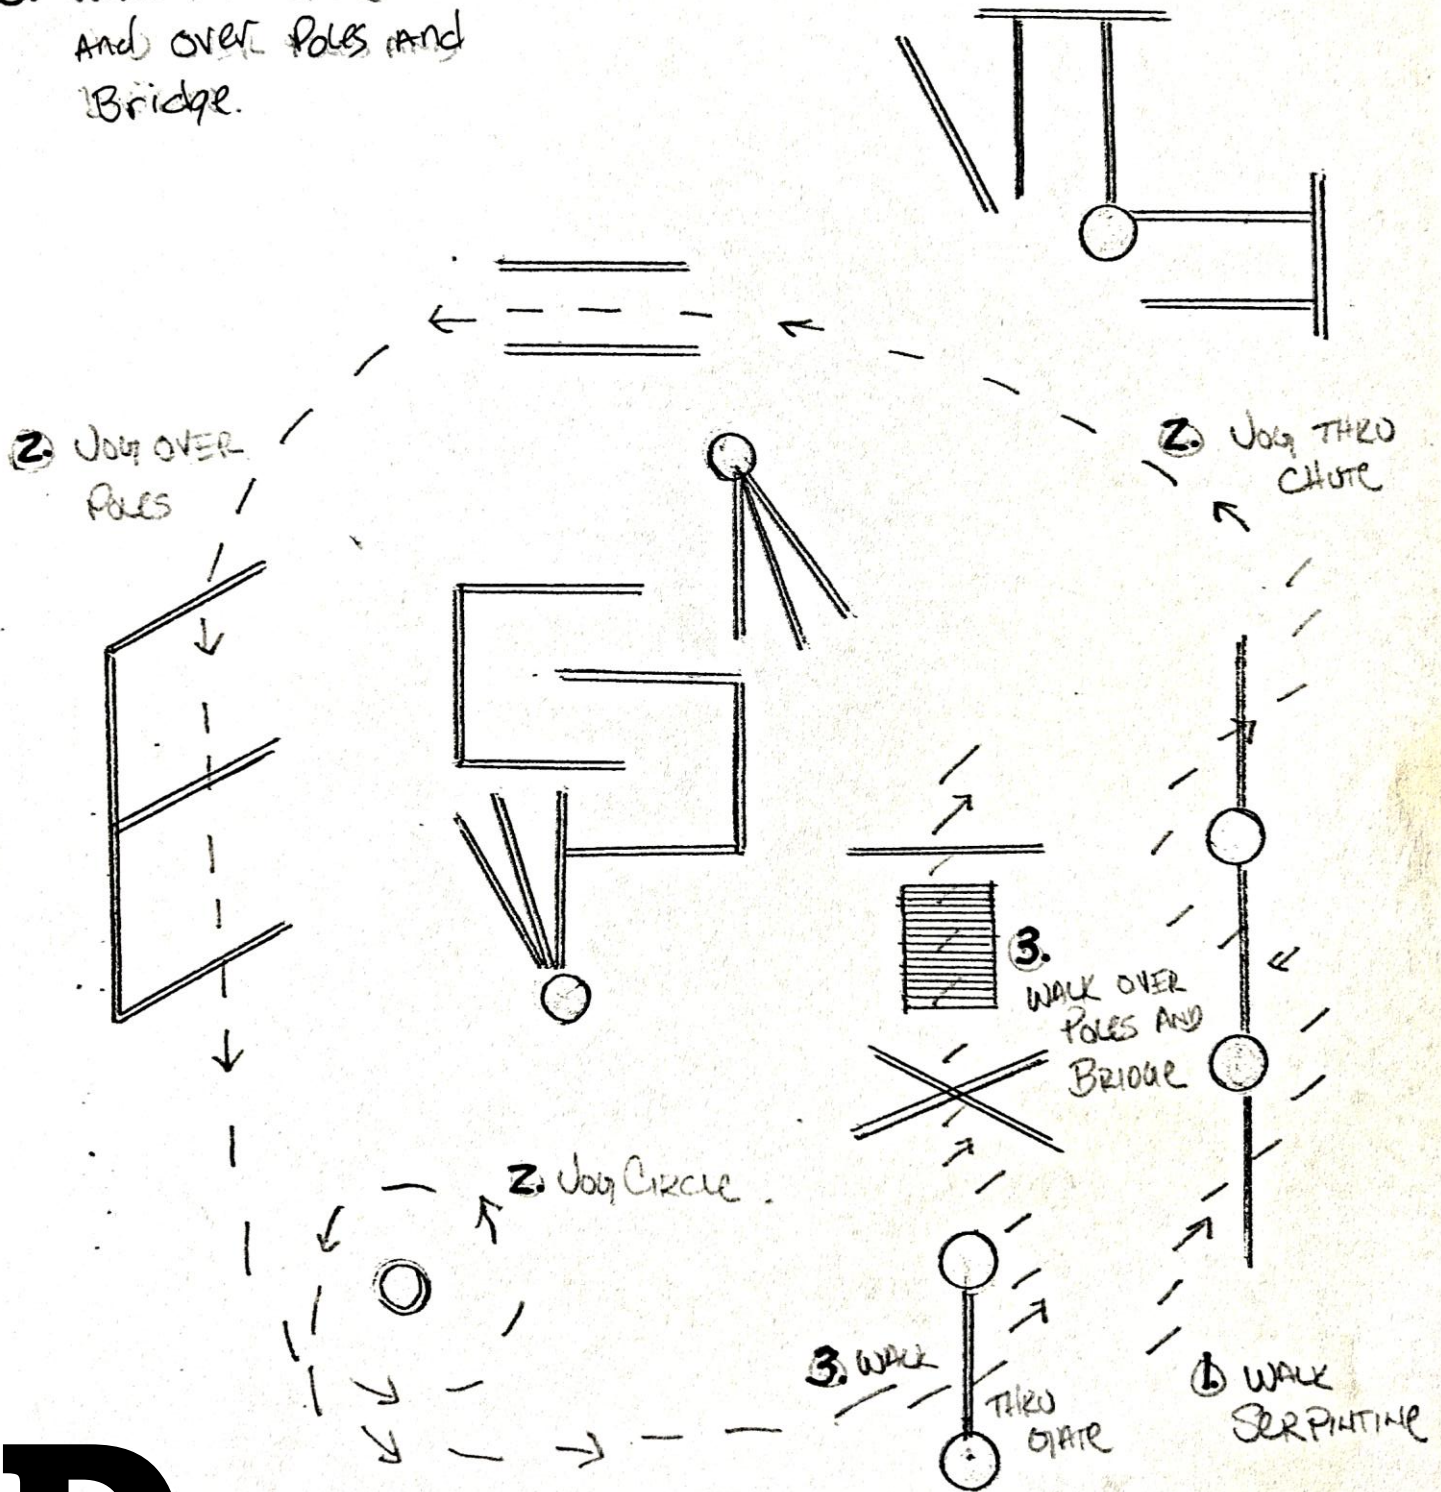 And over Poles And
Bridge.
2. JOG OVER
POLES
2. JOG THRU
CHUTE
3.
WALK OVER
POLES AND
BRIDGE
2. JOG CIRCLE.
3. WALK
THRU
GATE
1. WALK
SERPINTINE